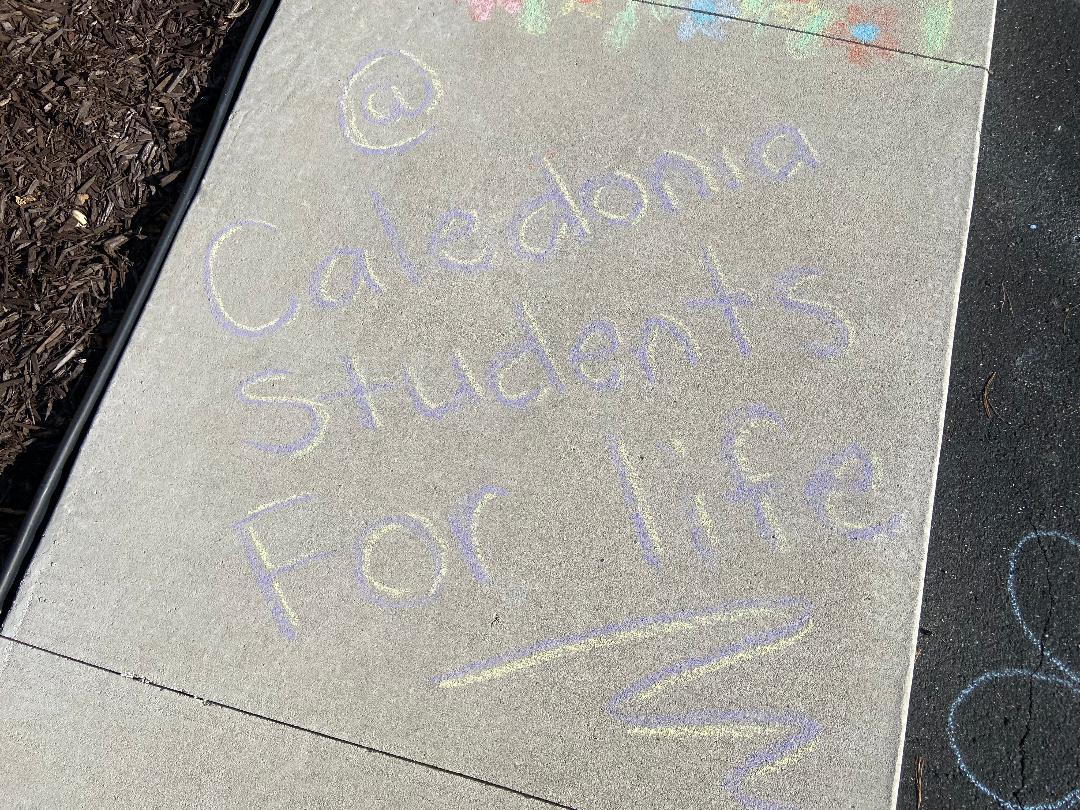 @
Caledonia
students
For life